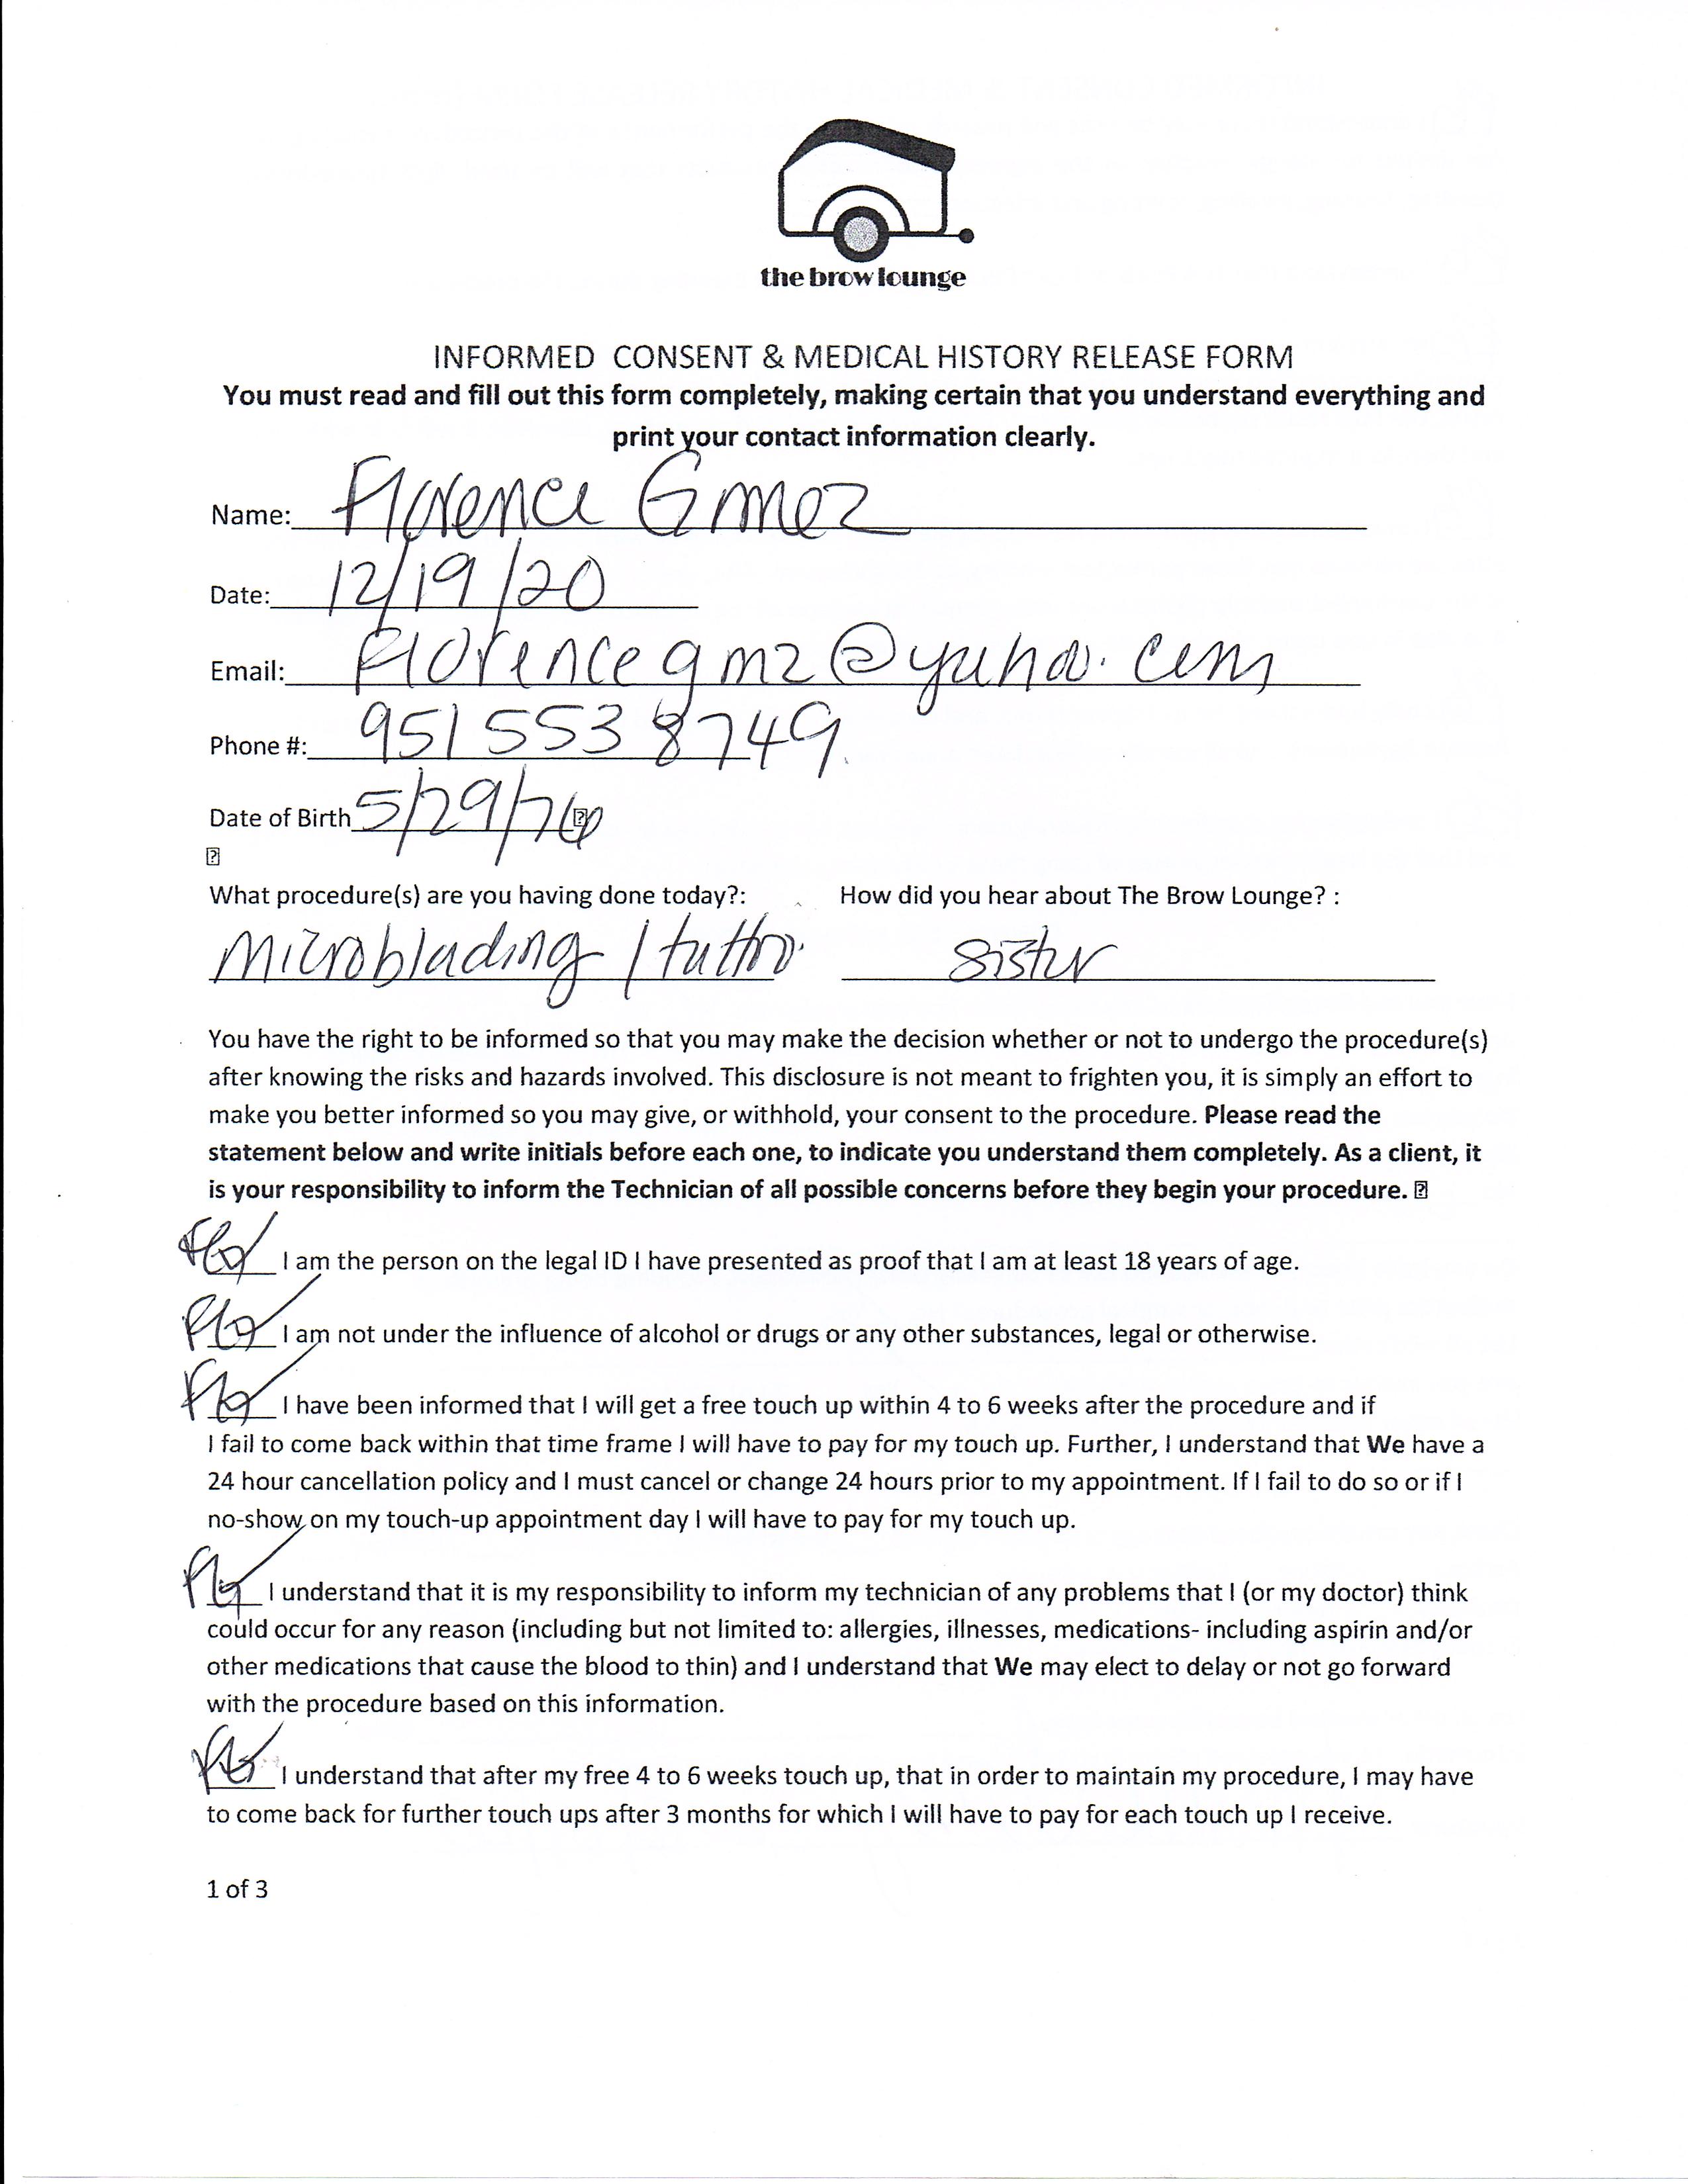 the brow lounge
INFORMED CONSENT & MEDICAL HISTORY RELEASE FORM
You must read and fill out this form completely, making certain that you understand everything and
print your contact information clearly.
Name: Florence Gmez
Date: 12/19/20
Email: Florencegmz@yahoo.com
Phone #: 951 553 8749
Date of Birth 5/29/76
What procedure(s) are you having done today?: How did you hear about The Brow Lounge? :
Microblading / tattoo sister
You have the right to be informed so that you may make the decision whether or not to undergo the procedure(s)
after knowing the risks and hazards involved. This disclosure is not meant to frighten you, it is simply an effort to
make you better informed so you may give, or withhold, your consent to the procedure. Please read the
statement below and write initials before each one, to indicate you understand them completely. As a client, it
is your responsibility to inform the Technician of all possible concerns before they begin your procedure.
I am the person on the legal ID I have presented as proof that I am at least 18 years of age.
I am not under the influence of alcohol or drugs or any other substances, legal or otherwise.
I have been informed that I will get a free touch up within 4 to 6 weeks after the procedure and if
I fail to come back within that time frame I will have to pay for my touch up. Further, I understand that We have a
24 hour cancellation policy and I must cancel or change 24 hours prior to my appointment. If I fail to do so or if I
no-show on my touch-up appointment day I will have to pay for my touch up.
I understand that it is my responsibility to inform my technician of any problems that I (or my doctor) think
could occur for any reason (including but not limited to: allergies, illnesses, medications- including aspirin and/or
other medications that cause the blood to thin) and I understand that We may elect to delay or not go forward
with the procedure based on this information.
I understand that after my free 4 to 6 weeks touch up, that in order to maintain my procedure, I may have
to come back for further touch ups after 3 months for which I will have to pay for each touch up I receive.
1 of 3